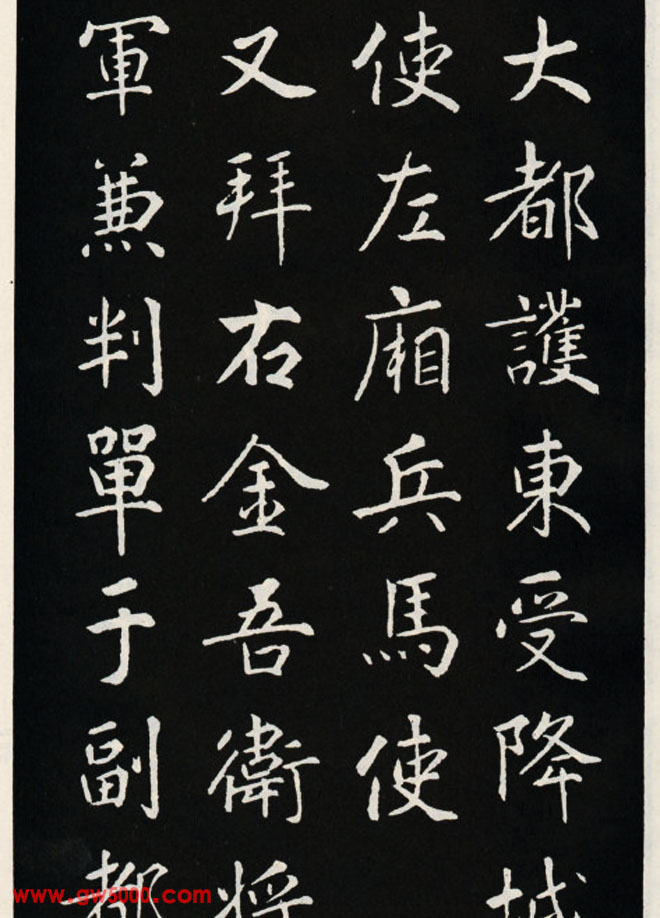 大都護東受降城
使左廂兵馬使
又拜右金吾衛將
軍兼判單于副都
www.gw5000.com